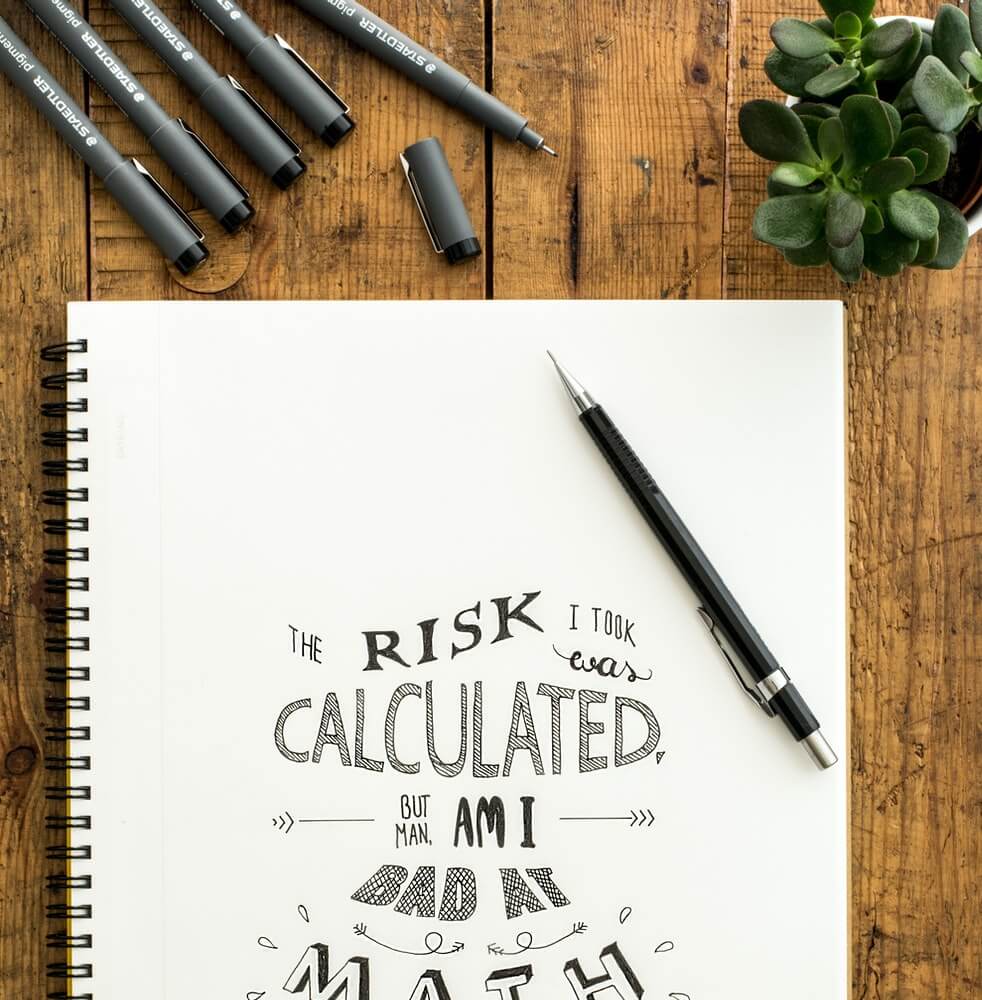 STAEDTLER pigment
STAEDTLER pigment
STAEDTLER
STAEDTLER
STAEDTLER pigment
THE RISK I TOOK
was
CALCULATED,
BUT
MAN, AM I
BAD AT
MATH